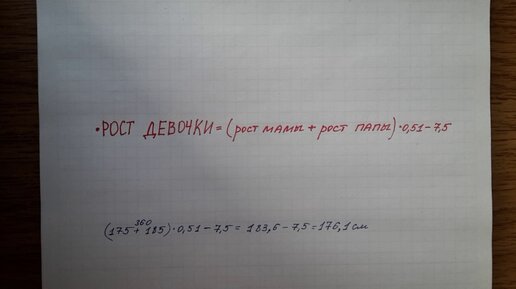 • РОСТ ДЕВОЧКИ = (рост мамы + рост папы) · 0,51 – 7,5
360
(175 + 185) · 0,51 – 7,5 = 183,6 – 7,5 = 176,1 см